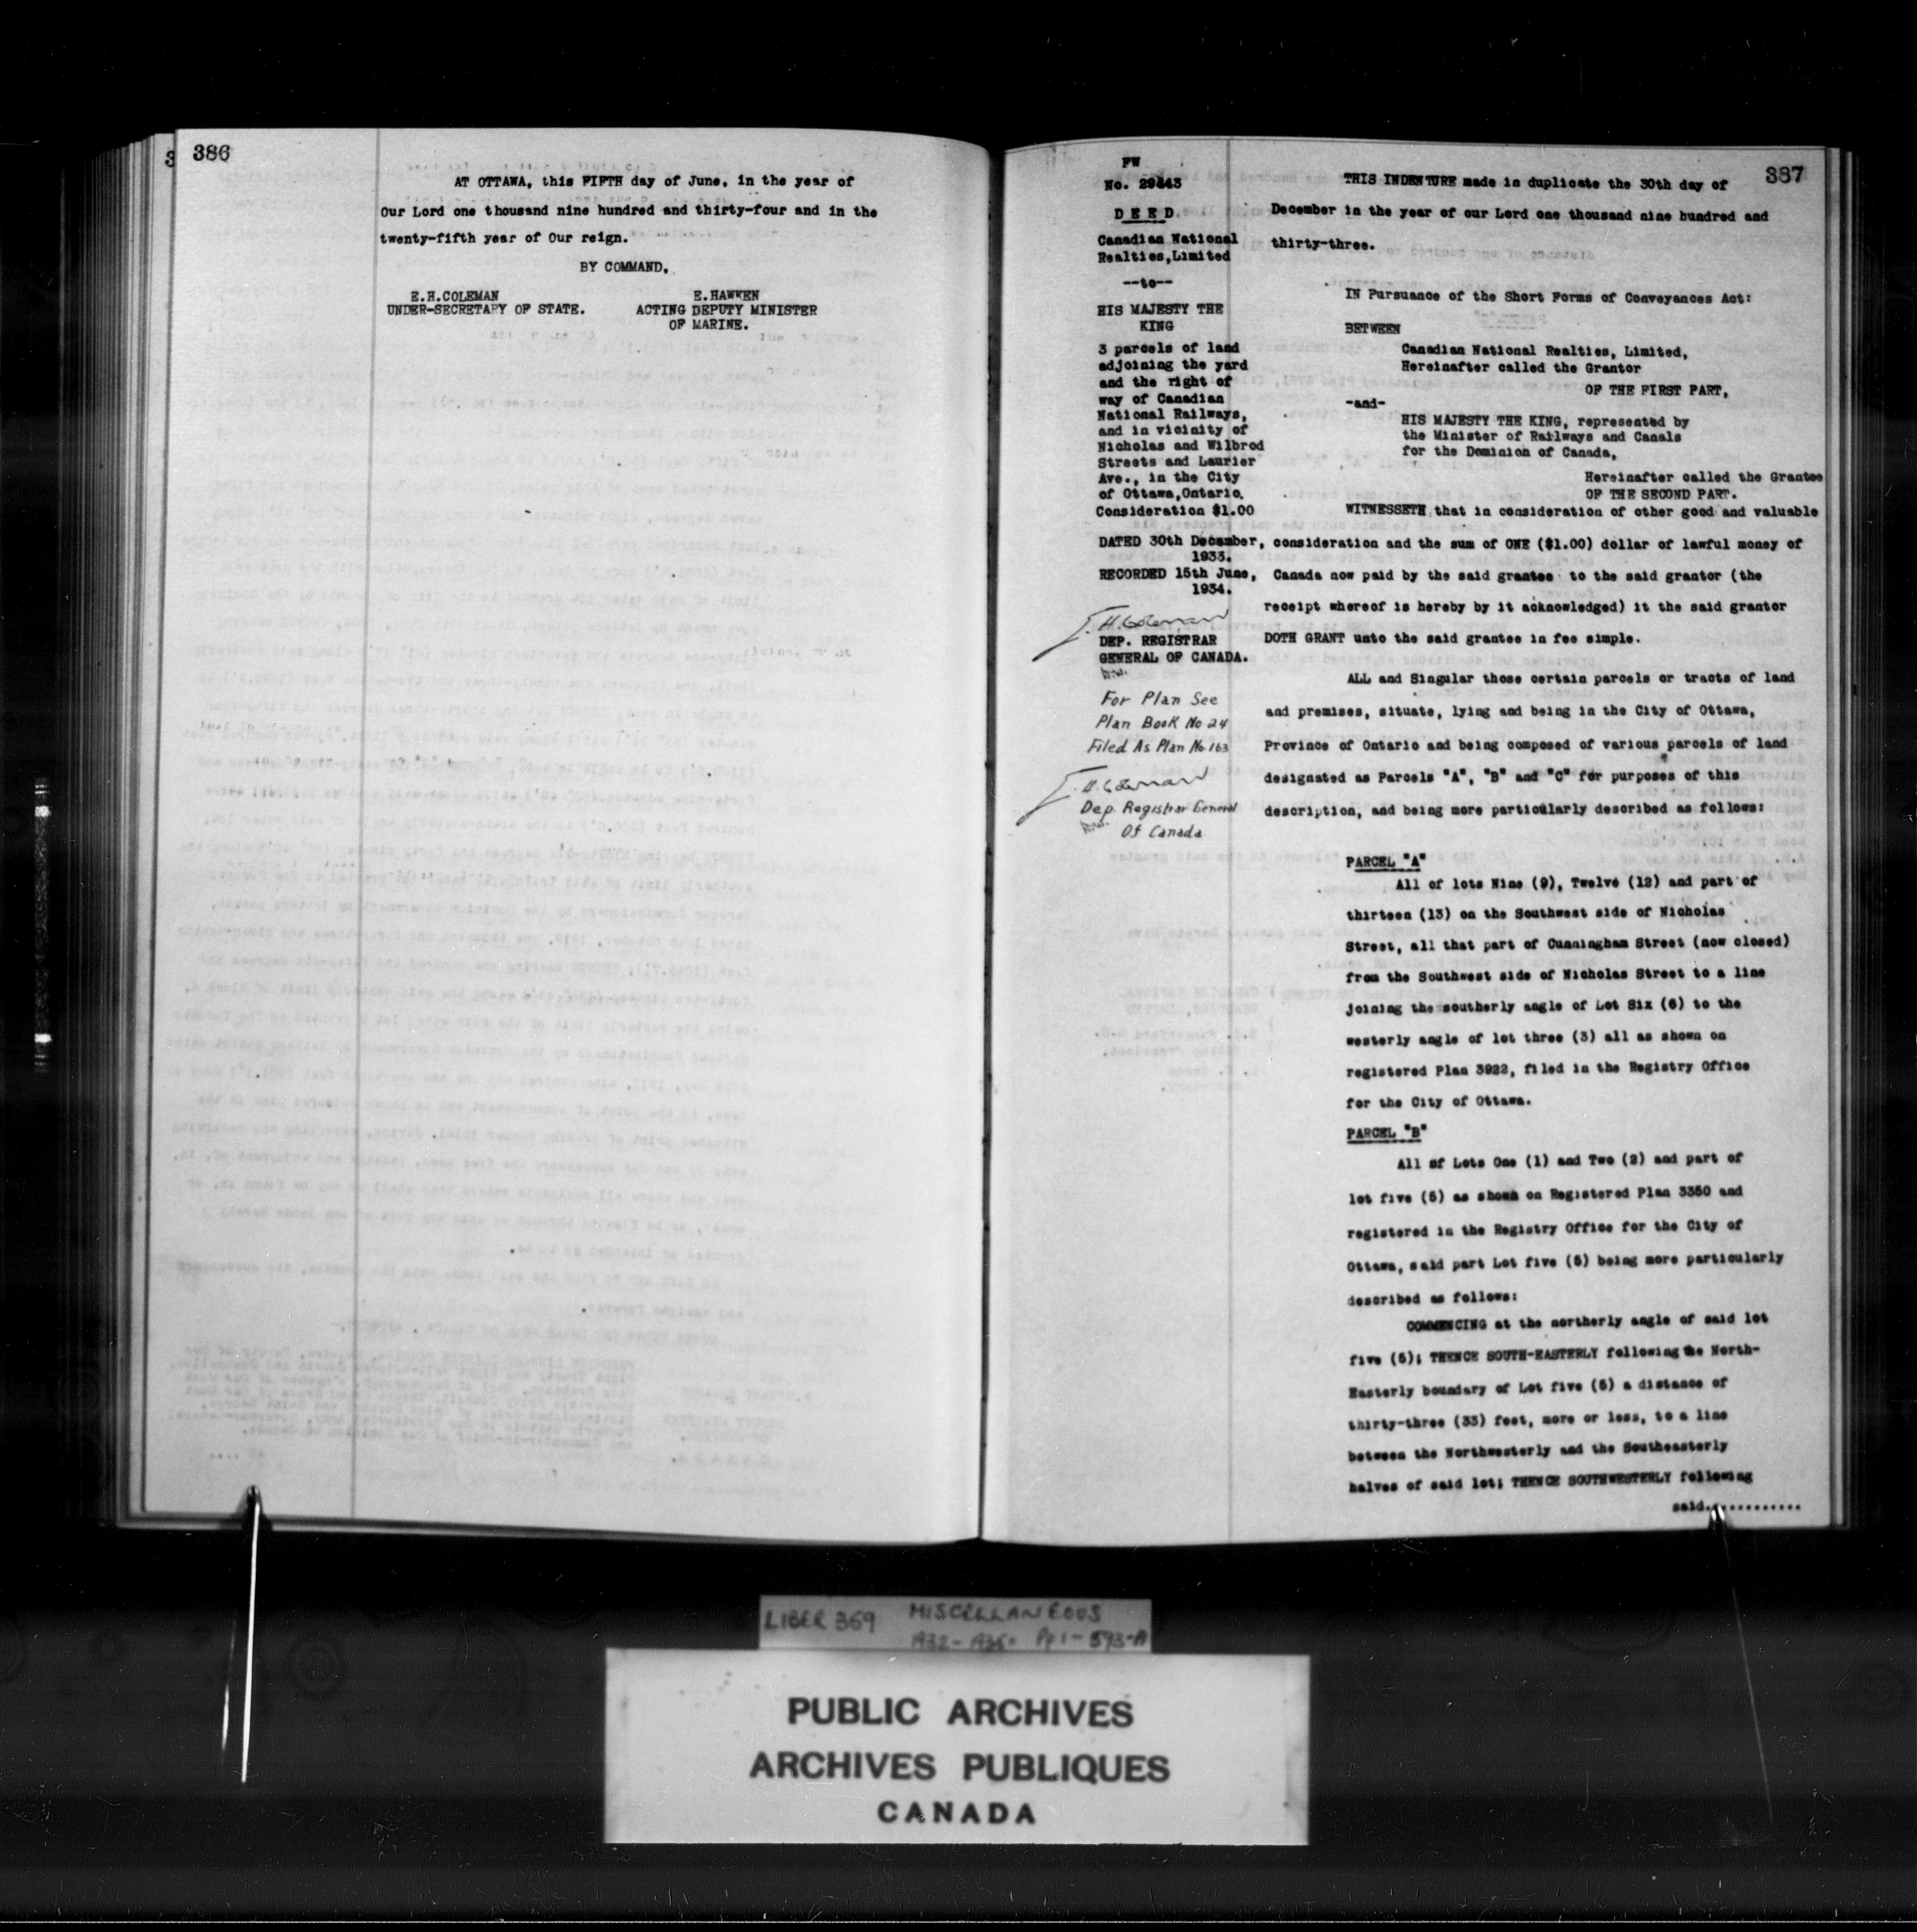 386
AT OTTAWA, this FIFTH day of June, in the year of
Our Lord one thousand nine hundred and thirty-four and in the
twenty-fifth year of Our reign.
BY COMMAND,
E.H.COLEMAN
UNDER-SECRETARY OF STATE.
E.HAWKEN
ACTING DEPUTY MINISTER
OF MARINE.
387
FW
No. 29443
DEED
Canadian National
Realties,Limited
--to--
HIS MAJESTY THE
KING
3 parcels of land
adjoining the yard
and the right of
way of Canadian
National Railways,
and in vicinity of
Nicholas and Wilbrod
Streets and Laurier
Ave., in the City
of Ottawa,Ontario.
Consideration $1.00
DATED 30th December,
1933.
RECORDED 15th June,
1934.
E.H.Coleman
DEP. REGISTRAR
GENERAL OF CANADA.
For Plan See
Plan Book No 24
Filed As Plan No 163
E.H.Coleman
Dep. Registrar General
Of Canada
THIS INDENTURE made in duplicate the 30th day of
December in the year of our Lord one thousand nine hundred and
thirty-three.
IN Pursuance of the Short Forms of Conveyances Act:
BETWEEN
Canadian National Realties, Limited,
Hereinafter called the Grantor
OF THE FIRST PART,
-and-
HIS MAJESTY THE KING, represented by
the Minister of Railways and Canals
for the Dominion of Canada,
Hereinafter called the Grantee
OF THE SECOND PART.
WITNESSETH that in consideration of other good and valuable
consideration and the sum of ONE ($1.00) dollar of lawful money of
Canada now paid by the said grantee to the said grantor (the
receipt whereof is hereby by it acknowledged) it the said grantor
DOTH GRANT unto the said grantee in fee simple.
ALL and Singular those certain parcels or tracts of land
and premises, situate, lying and being in the City of Ottawa,
Province of Ontario and being composed of various parcels of land
designated as Parcels "A", "B" and "C" for purposes of this
description, and being more particularly described as follows:
PARCEL "A"
All of lots Nine (9), Twelve (12) and part of
thirteen (13) on the Southwest side of Nicholas
Street, all that part of Cunningham Street (now closed)
from the Southwest side of Nicholas Street to a line
joining the southerly angle of Lot Six (6) to the
westerly angle of lot three (3) all as shown on
registered Plan 3922, filed in the Registry Office
for the City of Ottawa.
PARCEL "B"
All of Lots One (1) and Two (2) and part of
lot five (5) as shown on Registered Plan 3350 and
registered in the Registry Office for the City of
Ottawa, said part Lot five (5) being more particularly
described as follows:
COMMENCING at the northerly angle of said lot
five (5); THENCE SOUTH-EASTERLY following the North-
Easterly boundary of Lot five (5) a distance of
thirty-three (33) feet, more or less, to a line
between the Northwesterly and the Southeasterly
halves of said lot; THENCE SOUTHWESTERLY following
said............
LIBER 369 MISCELLANEOUS
A32 - A36 Pp 1 - 593-A
PUBLIC ARCHIVES
ARCHIVES PUBLIQUES
CANADA